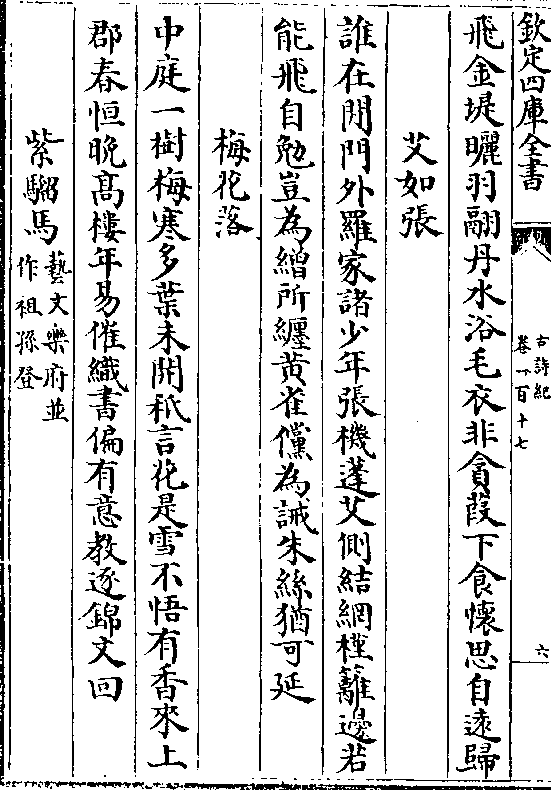 欽定四庫全書
古詩紀
卷一百十七
六
飛金堤曬羽翮丹水浴毛衣非貪葭下食懷思自遠歸
艾如張
誰在閑門外羅家諸少年張機蓬艾側結網槿籬邊若
能飛自勉豈為繒所纏黄雀儻為誡朱絲猶可延
梅花落
中庭一樹梅寒多葉未開秪言花是雪不悟有香來上
郡春恒晩髙樓年易催織書偏有意教逐錦文回
紫騮馬
藝文樂府並
作祖孫登